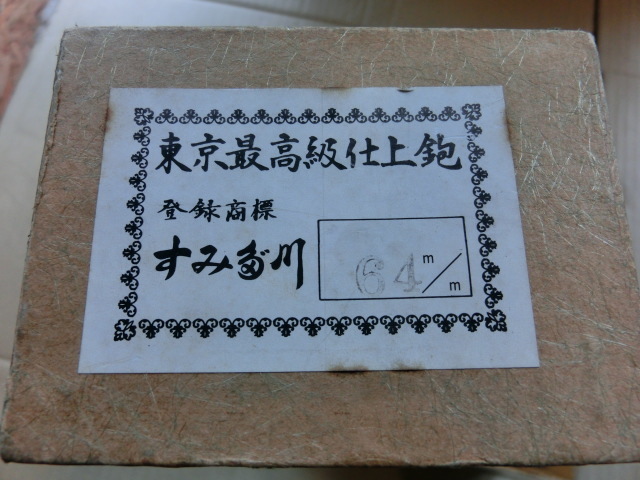 東京最高級仕上鉋
登録商標
すみだ川
64 m/m